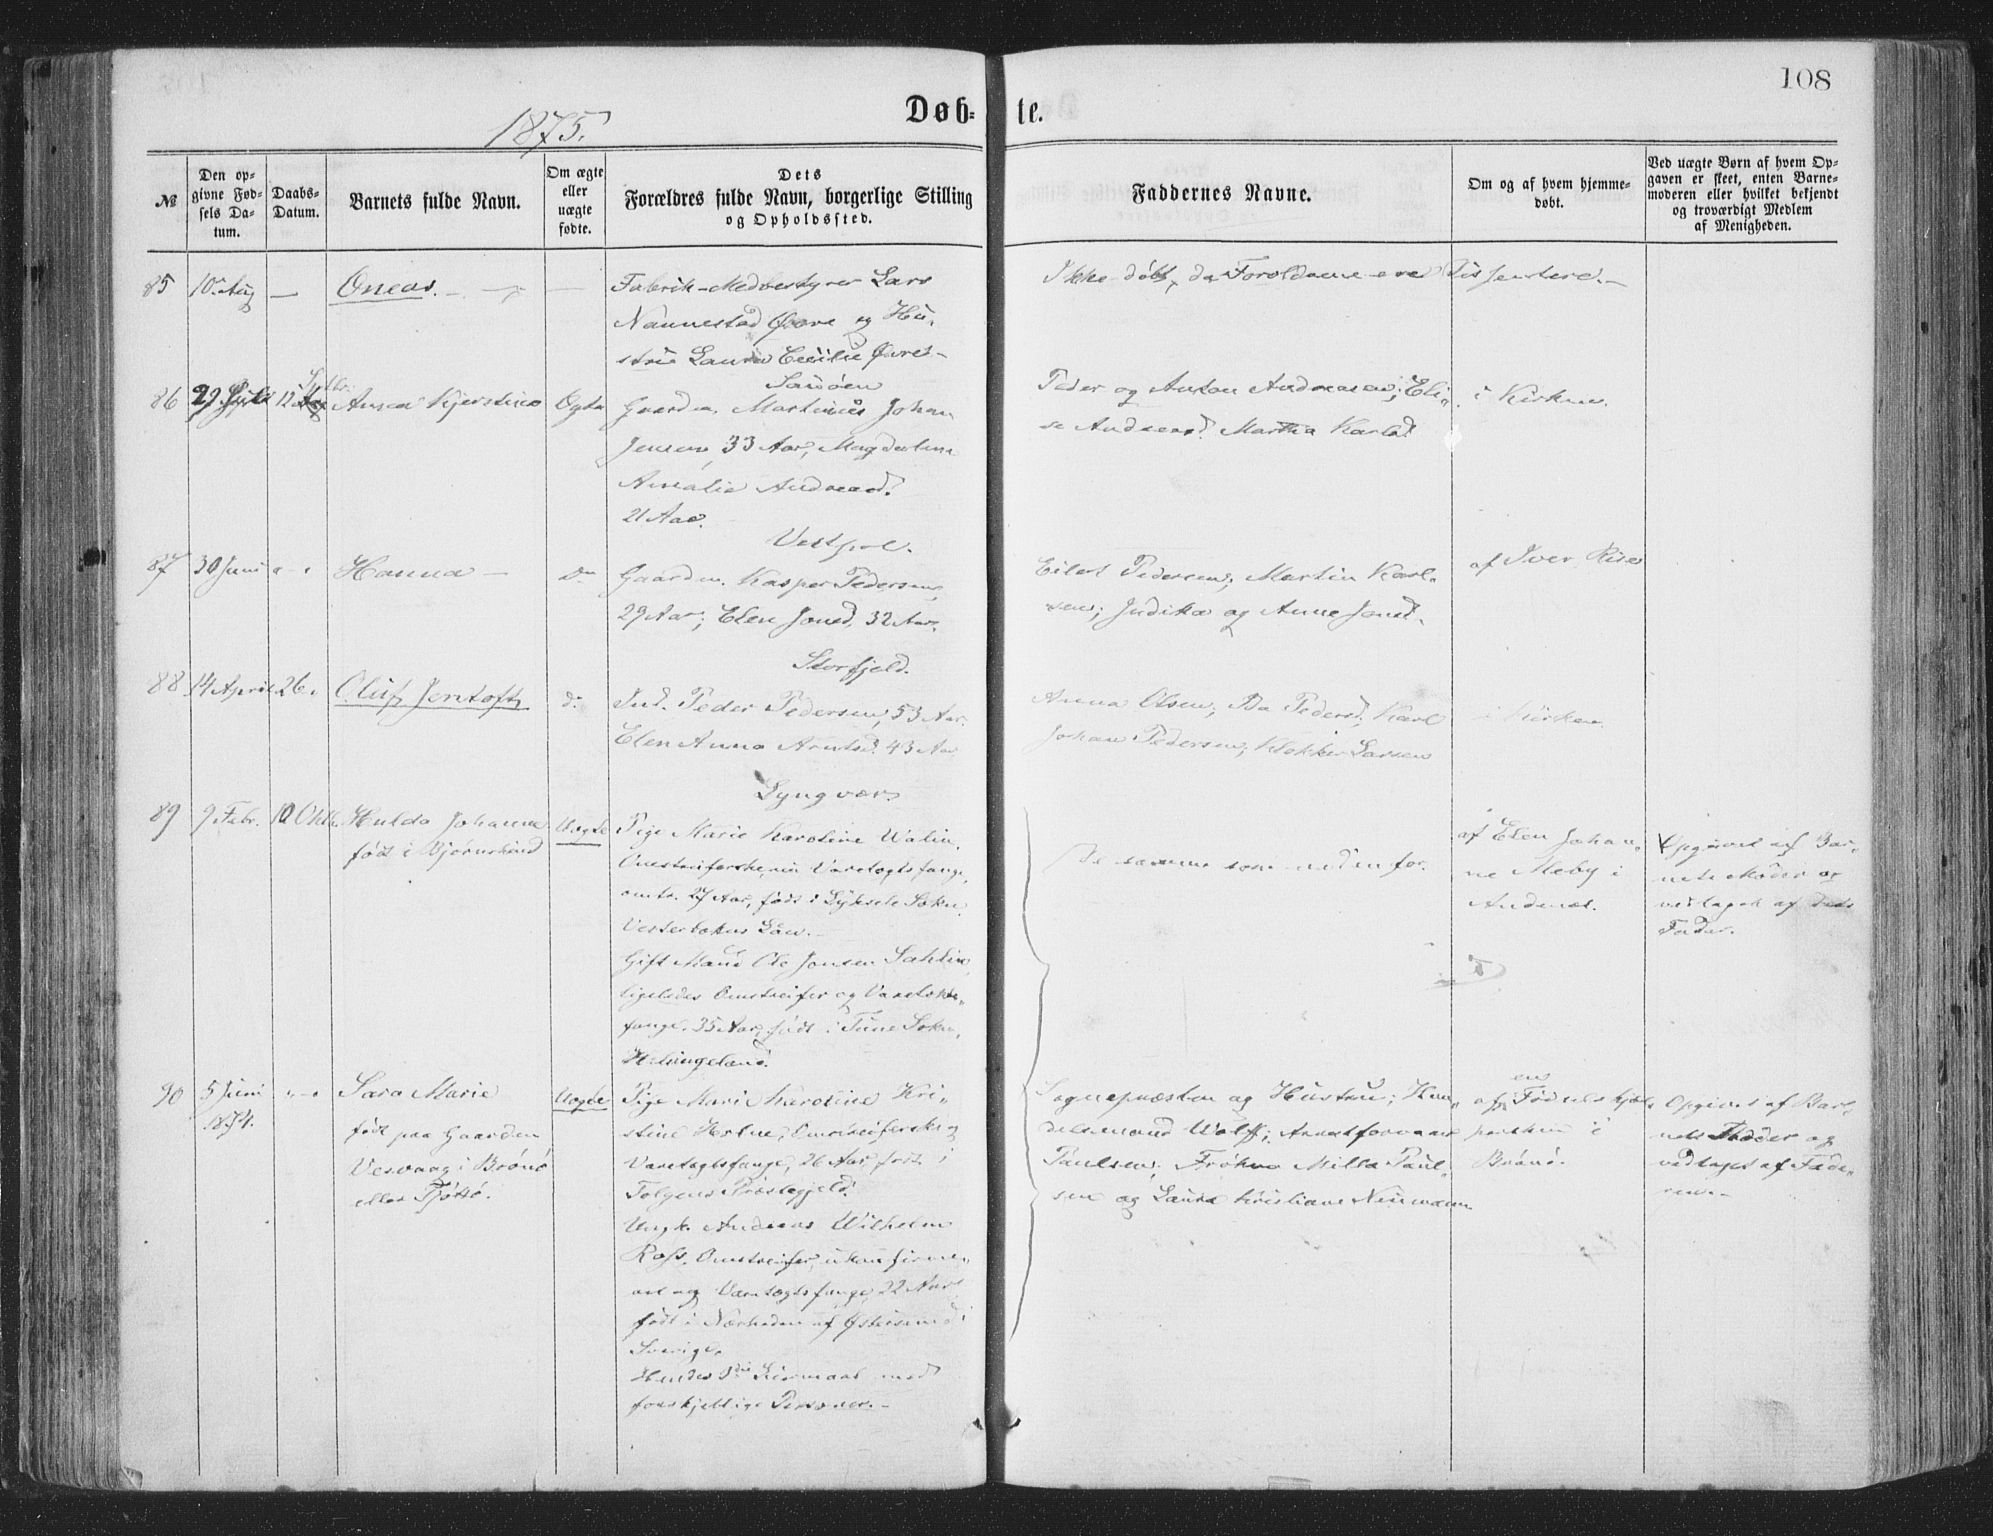 108
1875.
Døb- te.
№
Den op-
givne Fød-
sels Da-
tum.
Daabs-
Datum.
Barnets fulde Navn.
Om ægte
eller
uægte
fødte.
Dets
Forældres fulde Navn, borgerlige Stilling
og Opholdssted.
Faddernes Navne.
Om og af hvem hjemme-
døbt.
Ved uægte Børn af hvem Op-
gaven er skeet, enten Barne-
moderen eller hvilket bekjendt
og troværdigt Medlem
af Menigheden.
85 10 Aug — Oneas. — —
Fabrik-Medbestyrer Lars
Nannestad Øvre og Hu-
stru Laura Cecilie Øvres-
Ikke døbt, da Foroldrene ere Dissentere. —
86 29 Juli 12 Septbr. Anna Kjerstine Ægte
Gaardm. Martinus Johan
Jensen, 33 Aar, Magdalena
Amalie Andread.
21 Aar.
Peder og Anton Andreasen; Eli-
se Andreasd. Martha Karlsd.
i Kirken.
Vestpol.
87 30 Juni " - " Hanna — do
Gaardm. Kasper Pedersen,
29 Aar; Elen Jonsd, 32 Aar.
Eilert Pedersen; Martin Karl-
sen; Judika og Anne Jonsd.
af Iver Riise
Storfjeld.
88 14 April 26 " Oluf Jentoft do
Ind. Peder Pedersen, 53 Aar.
Elen Anna Arntsd. 43 Aar
Anna Olsen, Pedersd; Karl
Johan Pedersen; Klokker Larsen
i Kirken.
Lyngvær
89 9 Febr. 10 Oktb. Hulda Johanna
født i Bjørnskind
Uægte
Pige Marie Karoline Walin,
Omstreiferske,
27 Aar, født i Lyksele Sokn,
Vesterbotns Län. —
Gift Mand Ole Jonsen Sahlin,
ligeledes Omstreifer og Varetægts-
fange. 35 Aar, født i Tune Sokn,
Helsingeland.
De samme som nedenfor.
af Elen Johan-
ne Meby i
Andenæs.
Opgivet af Bar-
nets Moder og
vedtaget af dets
Fader.
90 5 Juni
1874.
" - " Sara Marie
født paa Gaarden
Vesvaag i Brønø
eller Tjøttø.
Uægte
Pige Marie Karoline Kri-
stine Helene, Omstreiferske og
Varetægtsfange, 26 Aar, født i
Tolgens Præstegjeld.
Ungk. Andreas Wilhelm
Ross, Omstreifer, ukonfirme-
ret og Varetægtsfange, 22 Aar
født i Nærheden af Østersund i
Sverige.
Hendes 3die Leiermaal med
forskjellige Personer. —
Sognepræsten og Hustru; Han-
delsmand Wolff; Arrestforvarer
Paulsen; Frøkne Milla Paul-
sen og Laura Kristiane Neumann
af en Fødselshjæl-
perske i
Brønø.
Opgivet af Bar-
nets Moder og
vedtaget af Fade-
ren. —